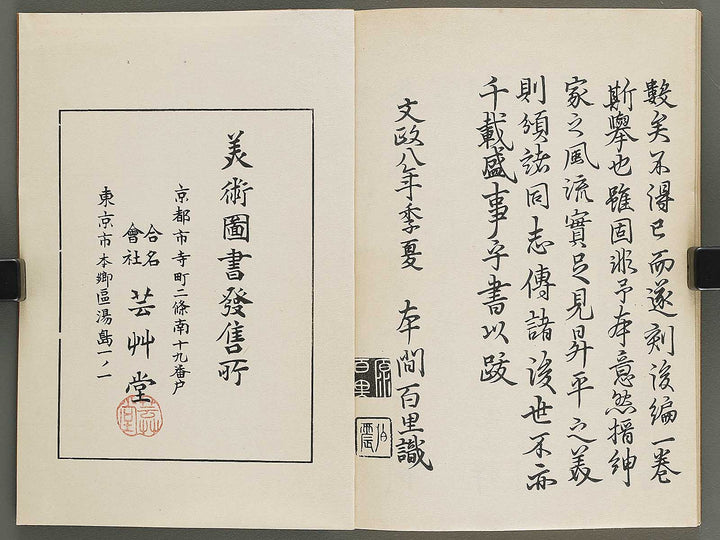 數矣不得已而遂刻後編一卷
斯擧也雖固非予本意然搢紳
家之風流實足見昇平之美
則頒諸同志傳諸後世不亦
千載盛事乎書以跋
文政八年季夏 本間百里識
原
百里
伯
震
美術圖書發售所
京都市寺町二條南十九番戶
合名
會社 芸艸堂
東京市本鄕區湯島一ノ一
芸艸
堂